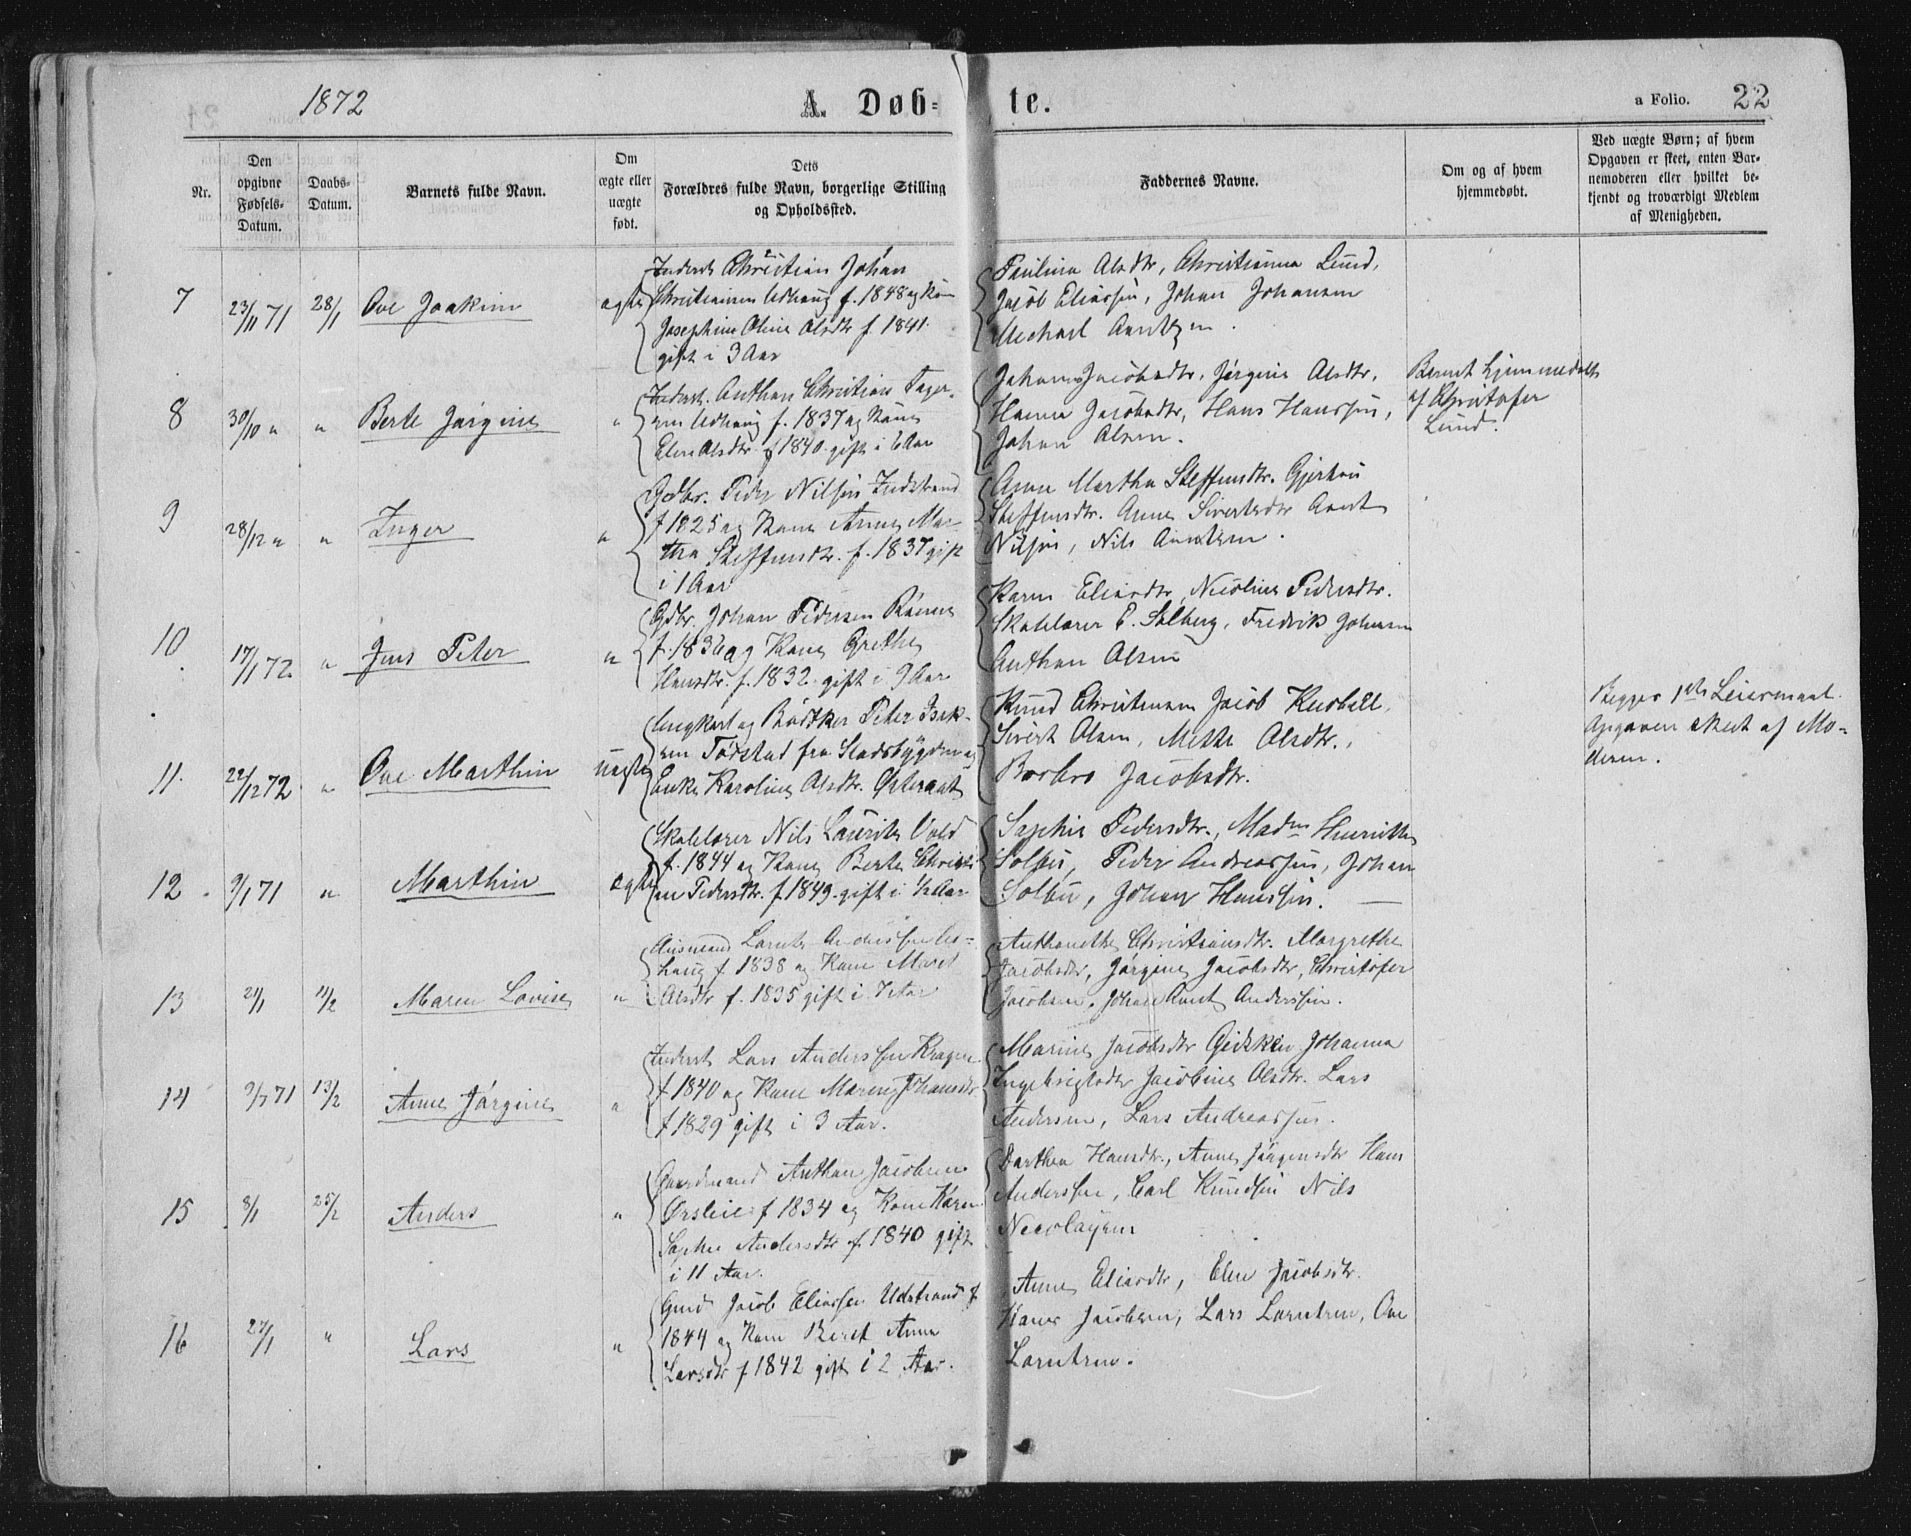 1872
A. Døb-
te.
a Folio. 22
Nr.
Den
opgivne
Fødsels-
Datum.
Daabs-
Datum.
Barnets fulde Navn.
Om
ægte eller
uægte
født.
Dets
Forældres fulde Navn, borgerlige Stilling
og Opholdssted.
Faddernes Navne.
Om og af hvem
hjemmedøbt.
Ved uægte Børn; af hvem
Opgaven er skeet, enten Bar-
nemoderen eller hvilket be-
kjendt og troværdigt Medlem
af Menigheden.
7
23/11 71
28/1
Ove Joakim
ægte
Inderst Christian Johan
Christiansen Udhaug f. 1848 og Kone
Josephine Oline Olsdtr f. 1841.
gift i 3 Aar
Paulina Olsdtr, Christianna Lund,
Jacob Eliassen, Johan Johansen
Michael Arntzen.
8
30/10 "
"
Berte Jørgine
"
Inderst. Anthon Christian
Udhaug f. 1837 og Kone
Elen Olsdtr f 1840 gift i 6 Aar
Jacobsdtr, Jørgine Olsdtr,
Hanna Jacobsdtr, Hans Hanssen,
Johan Olsen.
Barnet hjemmedøbt
af Christofer
Lund.
9
28/12 "
"
Inger
"
Gdbr. Peder Nilsen Indstrand
f 1825 og Kone Anne Mar-
tha Steffensdtr. f. 1837 gift
i 1 Aar
Anne Martha Steffensdtr.
Steffensdtr. Anne Sivertsdtr Arnt
Nilsen, Nils Arntsen.
10
17/1 72
"
Jens Peter
"
Gdbr. Johan Pedersen
f. 1836 og Kone Grethe
Hansdtr. f. 1832 gift i 9 Aar
Karen Eliasdtr, Nicoline Pedersdtr.
Skolelærer E. Solberg, Fredrik Johansen
Anthon Olsen
11
22/12 72
"
Ove Marthin
uægte
Ungkarl og Bødtker Peter Isak-
sen Tørstad fra Stadsbygden og
Enke Karoline Olsdtr. Østeraat
Knud Christensen Jacob
Sivert Olsen, Mette Olsdtr.,
Barbro Jacobsdtr.
Begges 1ste Leiermaal.
Opgaven skeet af Mo-
deren.
12
9/1 71
"
Marthin
ægte
Skolelærer Nils Laurits Vold
f. 1844 og Kone Berte Christi
ne Pedersdtr. f. 1849. gift i 1/2 Aar
Sophie Pedersdtr., Madm Henriette
Solbu, Peder Andreassen, Johan
Solbu, Johan Hanssen.
13
21/1
11/2
Maren Lovise
"
Huusmand Lorents Anderssen Ud-
haug f. 1838 og Kone Maret
Olsdtr f. 1835 gift i 7 Aar
Anthonette Christiansdtr. Margrethe
Jacobsdtr, Jørgine Jacobsdtr, Christofer
Jacobsen, Johan Arnt Anderssen.
14
9/7 71
13/2
Anne Jørgine
"
Inderst Lars Anderssen
f 1840 og Kone Maren Johansdtr
f 1829 gift i 3 Aar.
Marine Jacobsdtr Gidsken Johanna
Ingebrigtsdtr Jacobine Olsdtr. Lars
Andersen, Lars Andreassen.
15
8/1
25/2
Anders
"
Gaardmand Anthon Jacobsen
Ørsleie f 1834 og Kone Karen
Sophie Andersdtr f. 1840 gift
i 11 Aar.
Dorthea Hansdtr., Anne Jørgensdtr Hans
Anderssen, Carl Knudsen Nils
Nicolaysen
16
27/1
"
Lars
"
Gmd Jacob Eliassen Udstrand f
1844 og Kone Beret Anna
Larsdtr f 1842 gift i 2 Aar.
Anne Eliasdtr, Elen Jacobsdtr.
Jacobsen, Lars Lorntsen, Ove
Lorntsen.